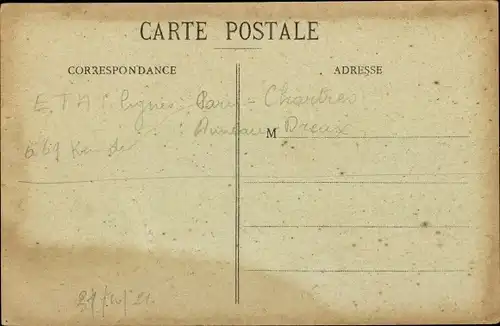 CARTE POSTALE
CORRESPONDANCE
ADRESSE
ETAT lignes Paris - Chartres
Auneau Dreux
M
à 69 Km de
21/10/21